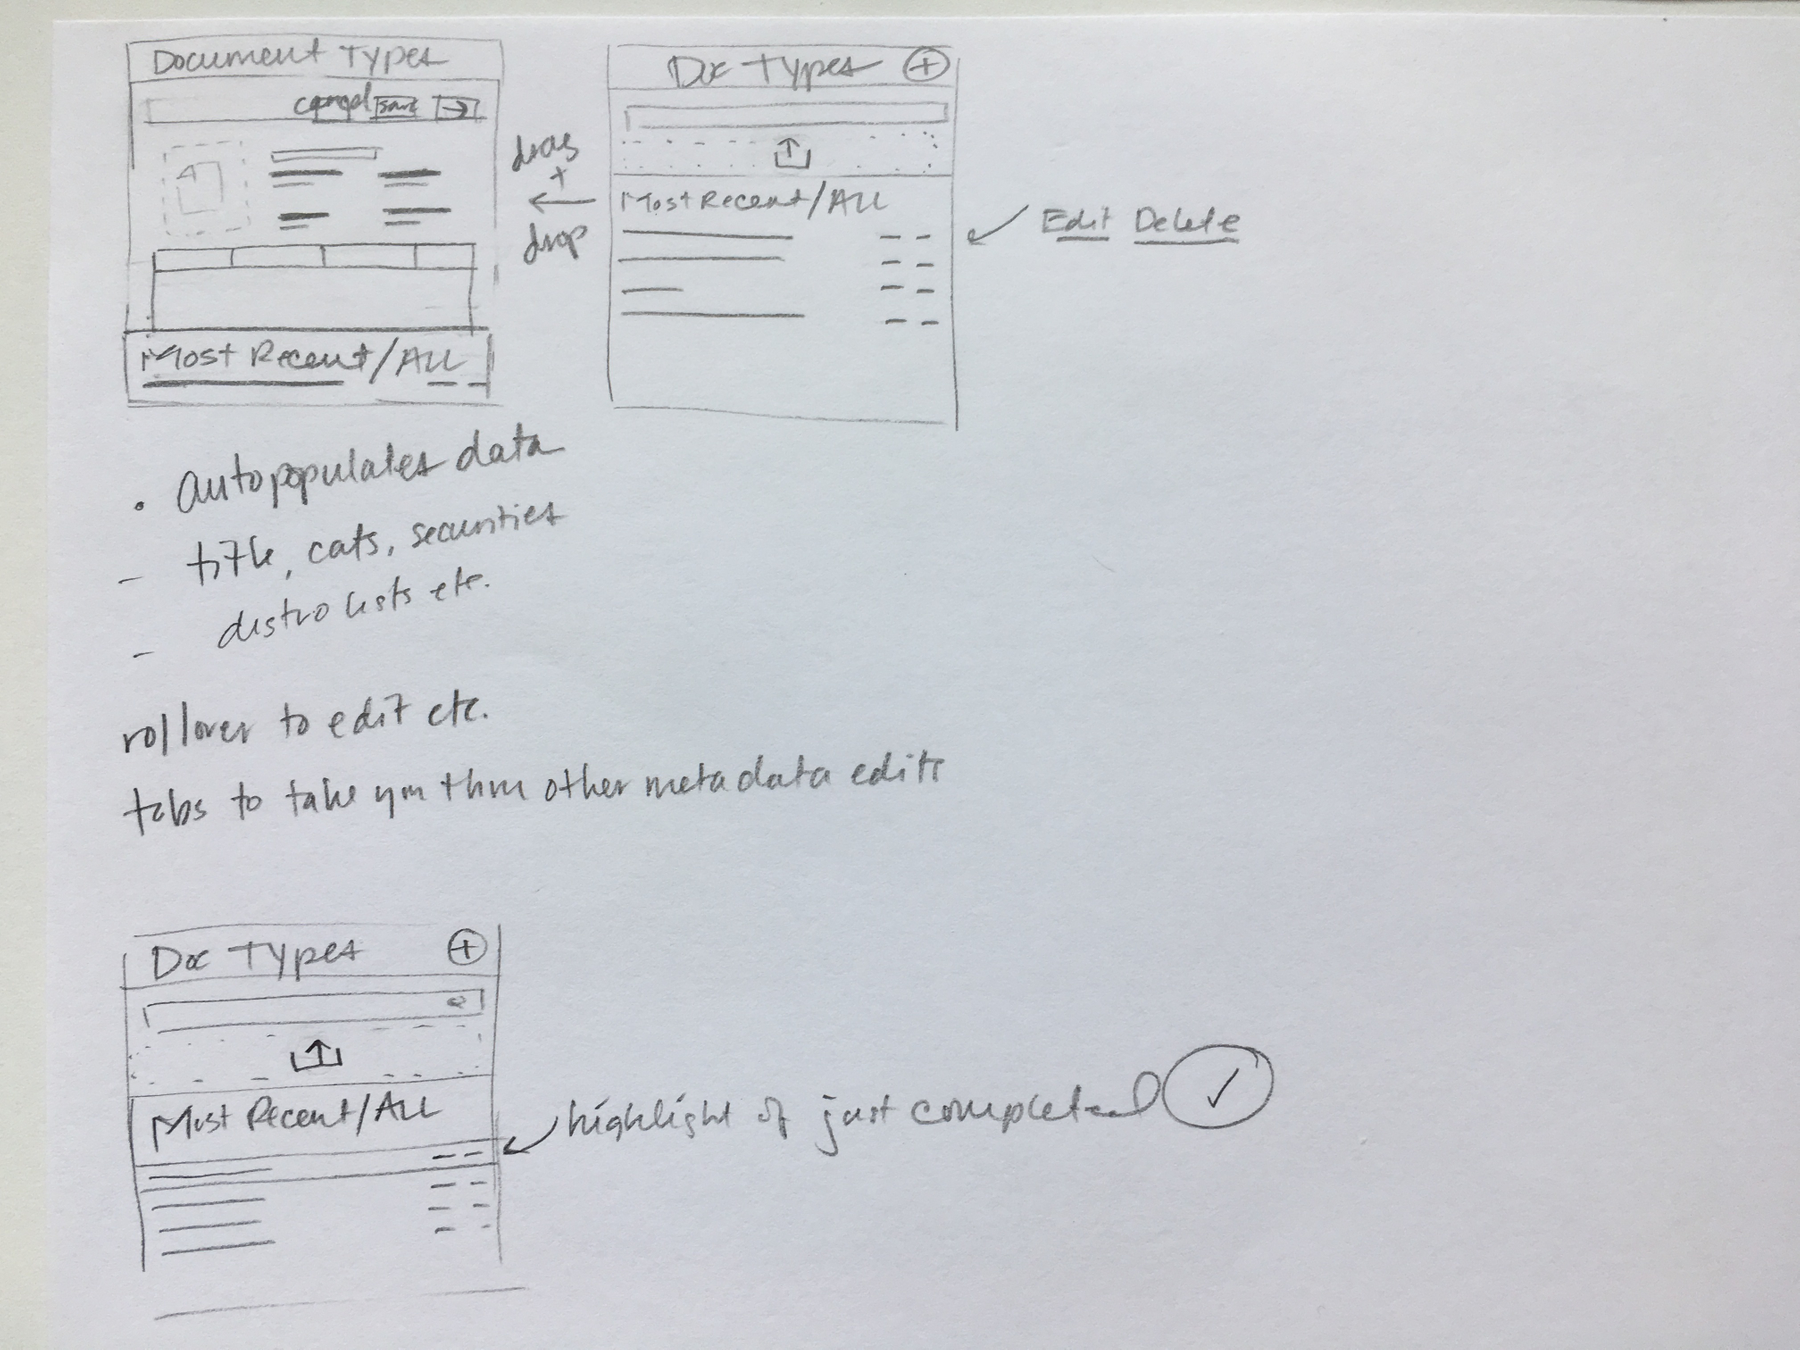 Document Types
cancel save
Most Recent/ALL
drag
+
drop
Doc Types +
Most Recent/ALL
Edit Delete
• autopopulates data
- title, cats, securities
- distro lists etc.
rollover to edit etc.
tabs to take you thru other metadata edits
Doc Types +
Most Recent/ALL
highlight of just completed ✓